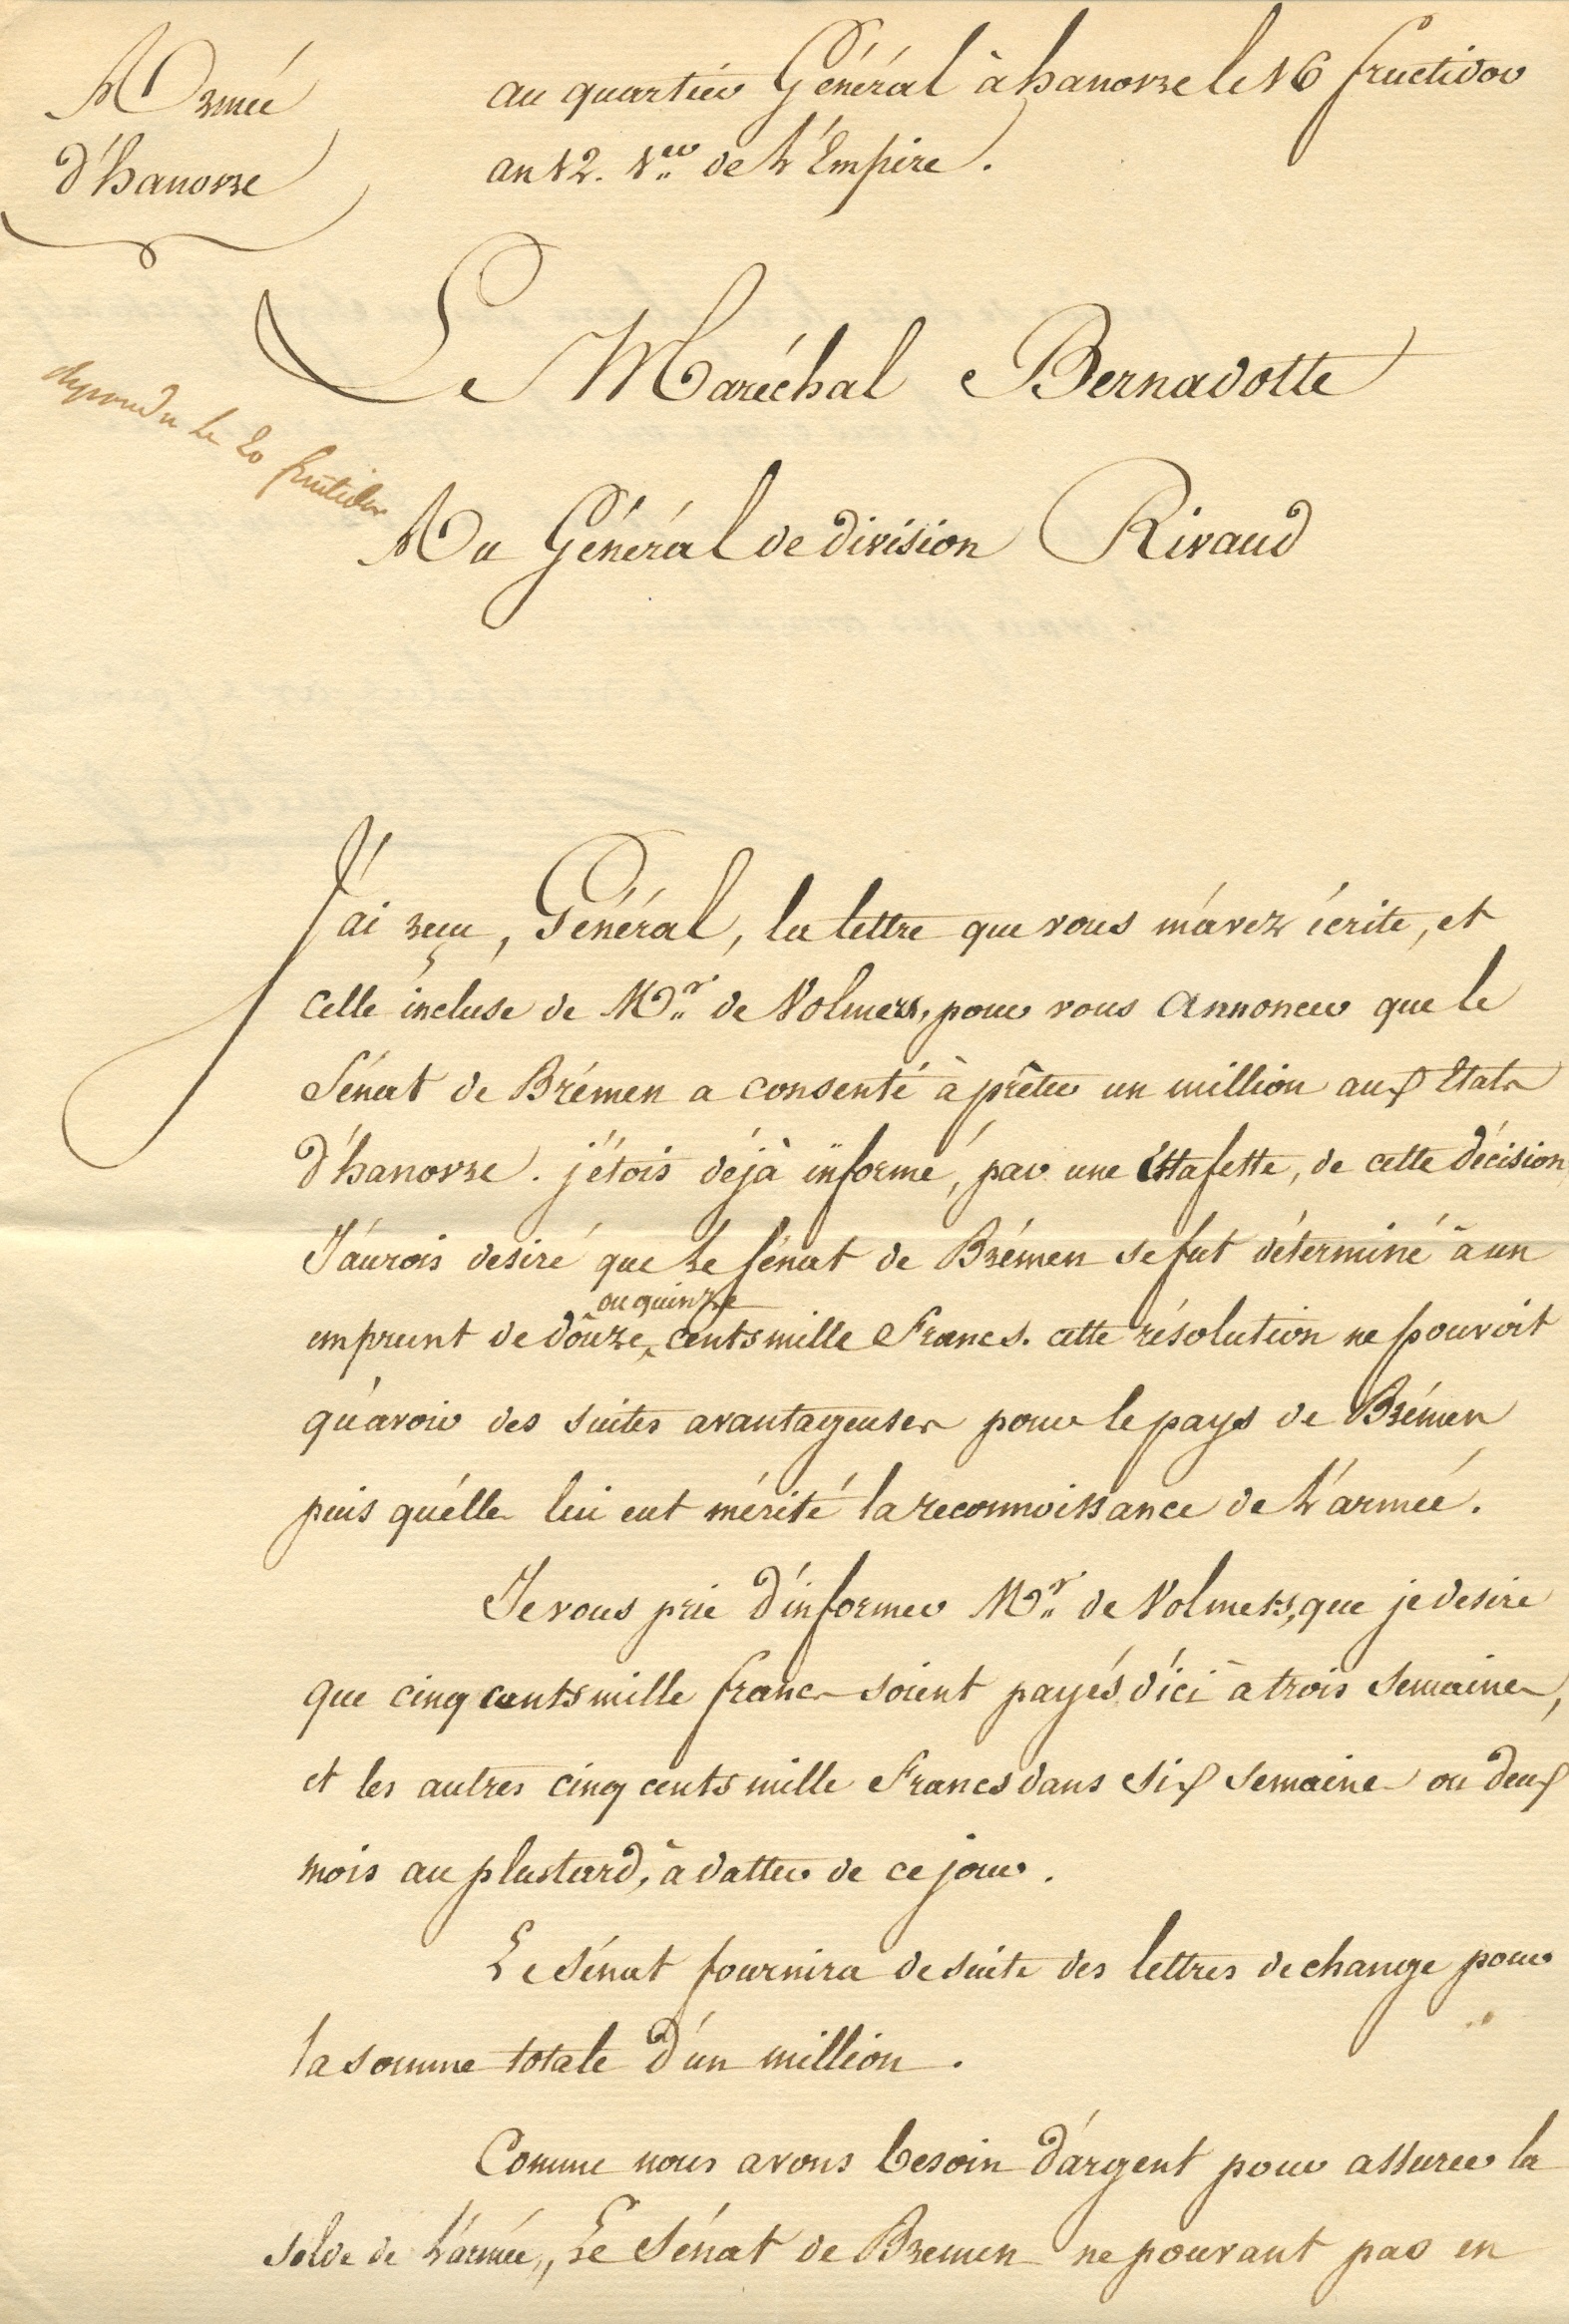 Armée
d'hanovre
au quartier Général à hanovre le 16 fructidor
an 12. 1.er de L'Empire.
Le Maréchal Bernadotte
repondu le 20 fructidor
Au Général de division Rivaud
J'ai reçu, Général, la lettre que vous m'avez écrite, et
celle incluse de Mr. de Volmers, pour vous annoncer que le
Sénat de Brémen a consenti à prêter un million aux Etats
d'hanovre. j'étois déjà informé, par une Estafette, de cette décision
J'aurois desiré que le Sénat de Brémen se fut déterminé à un
ou quinze
emprunt de douze cents mille Francs. cette résolution ne pouvoit
qu'avoir des suites avantageuses pour le pays de Brémen
puis qu'elle lui eut mérité la reconnoissance de L'armée.
Je vous prie d'informer Mr. de Volmers, que je desire
que cinq cents mille francs soient payés d'ici à trois semaines,
et les autres cinq cents mille Francs dans six semaines ou deux
mois au plustard, à datter de ce jour.
Le Sénat fournira de suite des lettres de change pour
la somme totale d'un million.
Comme nous avons besoin d'argent pour assurer la
solde de L'armée, Le Sénat de Bremen ne pouvant pas en